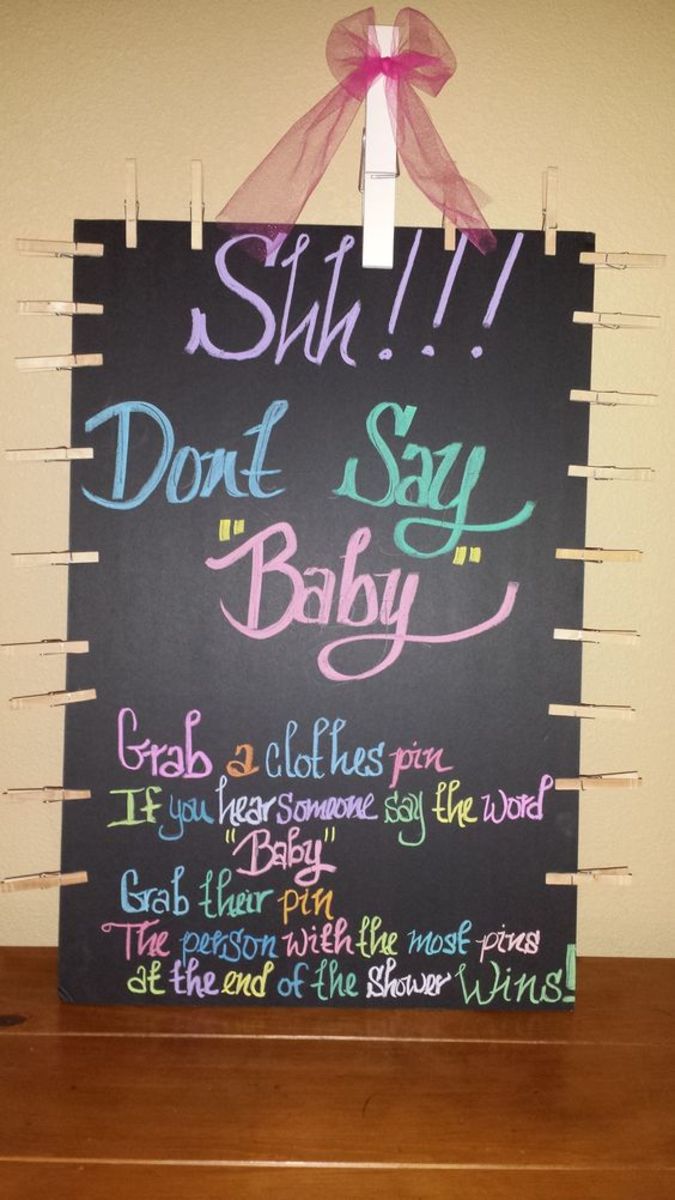 Shh!!!
Dont Say
"Baby"
Grab a clothes pin
If you hear someone say the word
"Baby"
Grab their pin
The person with the most pins
at the end of the shower Wins!